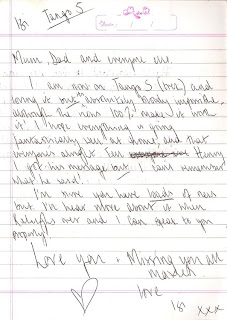 Tango 5
Mum, Dad and everyone else.
I am now on Tango 5 (love) and
loving it but
although the views 100% make it worth
it! I hope everything is going
fantastically well at home, and that
everyones alright. Tell Henny
I got his message but I can't remember
what he said!..
I'm sure you have loads of news
but I'll hear more about it when
over and I can speak to you
properly!
Love you + Missing you all
love
xxx